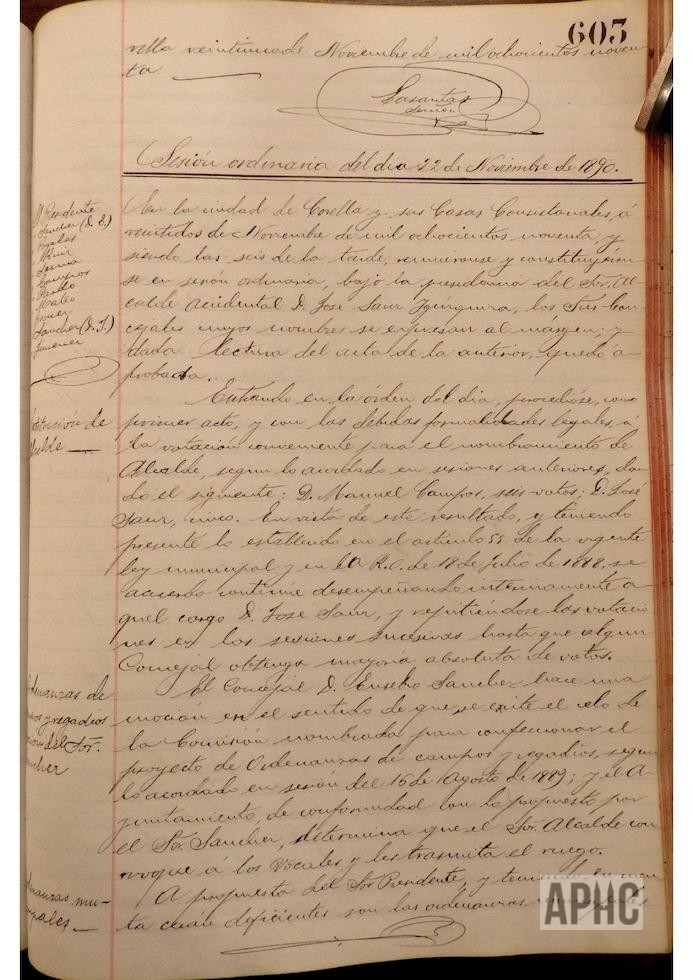 603
rella veintiuno de Noviembre de mil ochocientos noven-
ta
Sesión ordinaria del dia 22 de Noviembre de 1890.
Presidente
Sanchez (D. E.)
Ruiz
Campos
Mateo
Sanchez (D. J.)
Jimenez
En la ciudad de Corella y sus Casas Consistoriales, á
veintidos de Noviembre de mil ochocientos noventa, y
siendo las seis de la tarde, reunieronse y constituyeron-
se en sesión ordinaria, bajo la presidencia del Sor. Al-
calde Accidental D. José Sanz, los Sres. Con-
cejales cuyos nombres se expresan al márgen; y
dada lectura del acta de la anterior, quedó a-
probada.
Entrando en la órden del dia, procedióse, como
primer acto, y con las debidas formalidades legales, á
la votación conveniente para el nombramiento de
Alcalde, segun lo acordado en sesiones anteriores, dan-
do el siguiente: D. Manuel Campos, seis votos; D. José
Sanz, cinco. En vista de este resultado, y teniendo
presente lo establecido en el articulo 55 de la vigente
ley municipal y en la R. O. de 18 de Julio de 1888, se
acuerda continúe desempeñando interinamente a-
quel cargo D. José Sanz, y repitiendose las votacio-
nes en las sesiones sucesivas hasta que algun
Concejal obtenga mayoría absoluta de votos.
Ordenanzas de
y regadios
del Sor.
Sanchez
El Concejal D. Eusebio Sanchez hace una
moción en el sentido de que se exite el celo de
la Comisión nombrada para confeccionar el
proyecto de Ordenanzas de campos y regadios, segun
lo acordado en sesión del 16 de Agosto de 1889; y el A-
yuntamiento, de conformidad con lo propuesto por
el Sor. Sanchez, determina que el Sor. Alcalde con-
voque á los Vocales y les trasmita el ruego.
Ordenanzas mu-
nicipales
A propuesta del Sor. Presidente, y teniendo en cuen-
ta cuán deficientes son las ordenanzas municipales
APHC